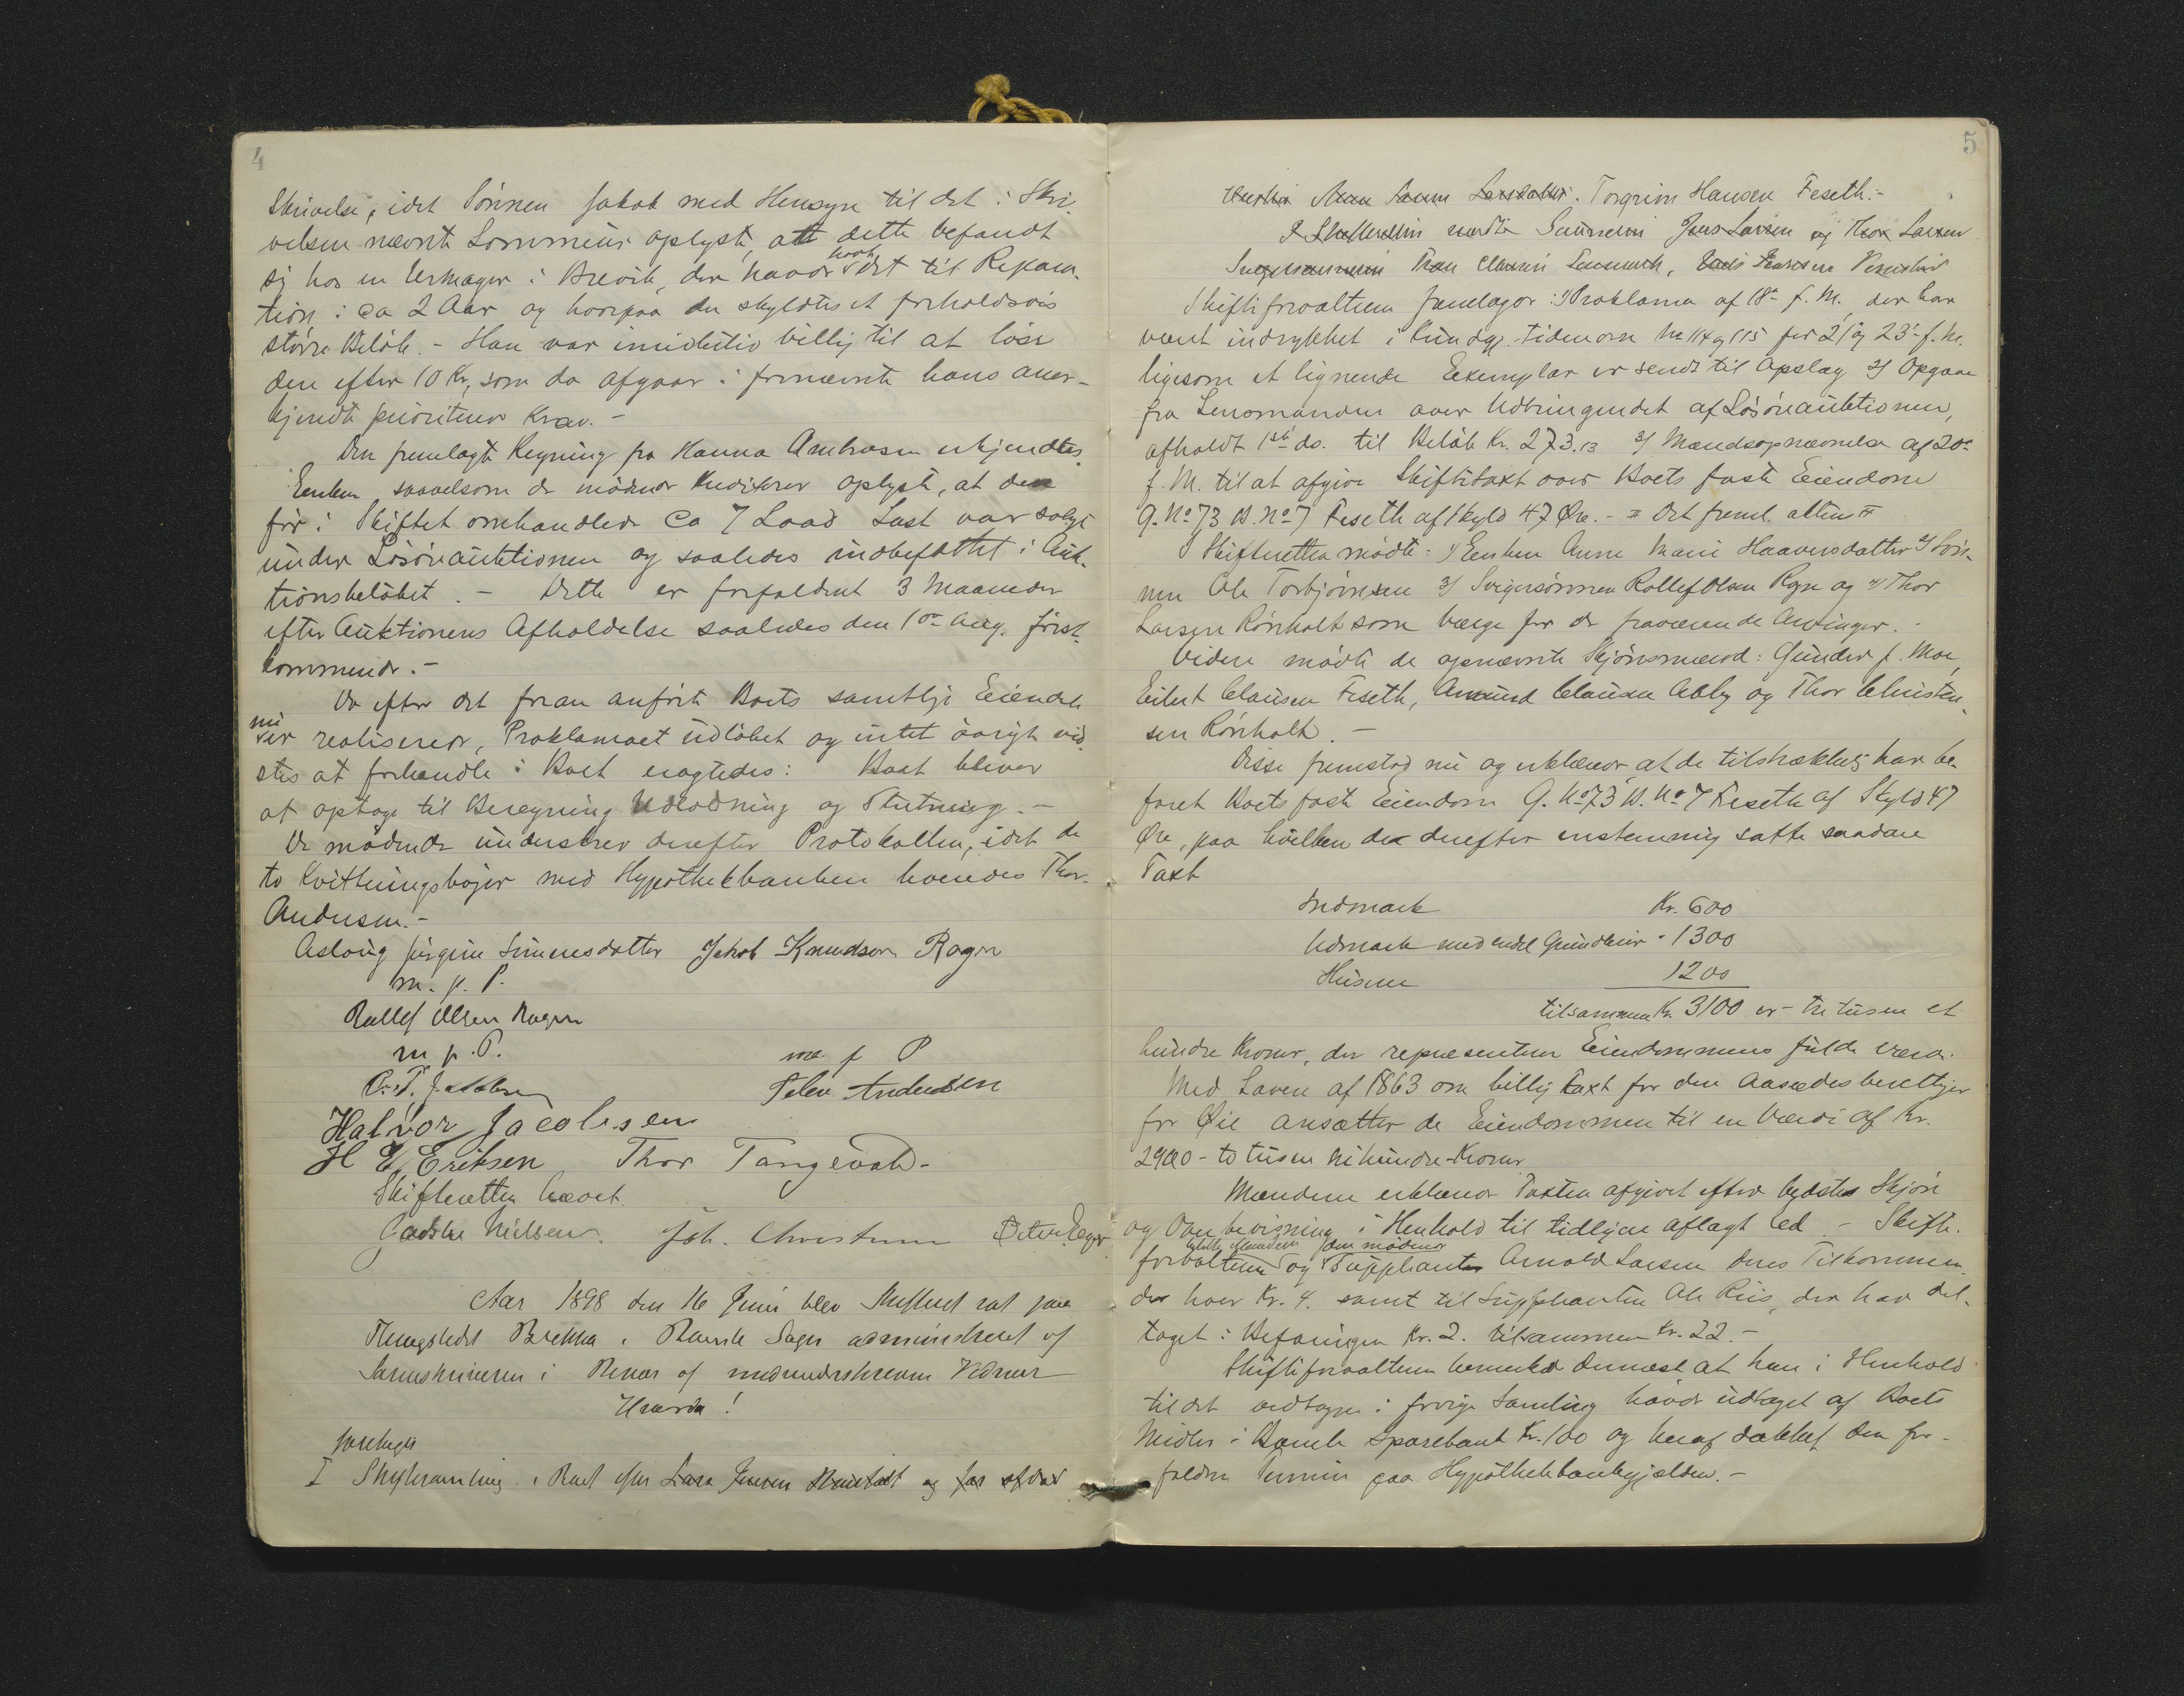 4
Skrivelse, idet Sønnen Jakob med Hensyn til det i Skri-
velsen nævnte Lommeuhr oplyste, att dette befandt
sig hos en Urmager i Brevik, der havde havt det til Repara-
tion i ca 2 Aar og hvorpaa der skyldtes et forholdsvis
større Beløb. - Han var imidlertid villig til at løse
den efter 10 Kr, som da afgaar i fornævnte hans aner-
kjendte prioriterede Krav. -
Den fremlagte Regning fra Hanna Ambrosen erkjendtes
Enken saavelsom de mødende Kreditorer oplyste, at den
før i Skiftet omhandlede ca 7 Laad Last var solgt
under Løsøreauktionen og saaledes indbefattet i Auk-
tionsbeløbet. - Dette er forfaldent 3 Maaneder
efter Auktionens Afholdelse saaledes den 10de Aug. først-
kommende. -
Da efter det foran anførte Boets samtlige Eiendele
nu er realiserede, Proklamaet udløbet og intet øvrigt vid-
stes at forhandle i Boet eragtedes: Boet bliver
at optage til Beregning Udlodning og Slutning. -
De mødende underskrev derefter Protokollen, idet de
to Kvitteringsbøger med Hypothekbanken leveredes Thor
Andersen. -
Aslaug Jørgine Simensdatter Jakob Knudsen Rogn
m. p. P.
Rollef Olsen Rogn
m. p. P. m. p P
O. T. Jacobsen Peder Andersen
Halvor Jacobsen
H E Eriksen Thor Tangevald
Skifteretten hævet.
Joh. Christensen
Aar 1898 den 16 Juni blev Skifteret sat paa
Thingstedet Brekka i Bamle Sogn administreret af
Sorenskriveren i Nærvær af medunderskrevne Vidner
Hvorda!
foretoges
I Skiftesamling i Boet efter Lars Jensen og
5
Torgrim Hansen Feseth. -
I Skifteretten mødte Sønnerne Jens Larsen og Thor Larsen
Svigersønnerne
Skifteforvalteren fremlagde: 1/ Proklama af 18de f. M. der har
været indrykket i Kundgj. tidenden No 114 og 115 for 21 og 23de f. M.
ligesom et lignende Exemplar er sendt til Opslag 2/ Opgave
fra Lensmanden over Udbringendet af Løsøreauktionen,
afholdt 1ste ds. til Beløb Kr. 273.13 3/ Mandsopnævnelse af 20de
f. M. til at afgive Skiftetaxt over Boets faste Eiendom
G. No 73 B. No 7 Feseth af Skyld 47 Øre. - Det freml. atten
I Skifteretten mødte: 1/ Enken Anne Marie Haavorsdatter 2/ Søn-
nen Ole Torbjørnsen 3/ Svigersønnen Rollef Olsen Rogn og 4/ Thor
Larsen Rønholt som Værge for de fraværende Arvinger. -
Videre mødte de opnævnte Skjønsmænd: Gunder J. Moe,
Eilert Clausen Feseth, Amund Clausen Abby og Thor Christen-
sen Rønholt. -
Disse fremstod nu og erklærede at de tilstrækkelig har be-
faret Boets faste Eiendom G. No 73 B. No 7 Feseth af Skyld 47
Øre, paa hvilken de derefter enstemmig satte saadan
Taxt
Indmark Kr. 600
Udmark med endel Grundleier " 1300
Husene 1200
tilsammen Kr. 3100 er - tre tusen et
hundre Kroner, der repræsenterer Eiendommens fulde Værdi.
Med Loven af 1863 om billig Taxt for den Aasædesberettigede
for Øie ansætter de Eiendommen til en Værdi af Kr.
2900 - to tusen nihundre Kroner
Mændene erklærede Taxten afgivet efter bedste Skjøn
og Overbevisning i Henhold til tidligere aflagt Ed - Skifte-
forvalteren og den mødende Suppleant Arnold Larsen deres Tilkommen-
de hver Kr. 4. samt til Suppleanten Ole Riis, der har del-
taget i Befaringen Kr. 2. tilsammen Kr. 22. -
Skifteforvalteren bemærkede dernæst at han i Henhold
til det vedtagne i forrige Samling havde udtaget af Boets
Midler i Bamle Sparebank Kr. 100 og heraf dækket den for-
faldne Termin paa Hypothekbankgjælden. -